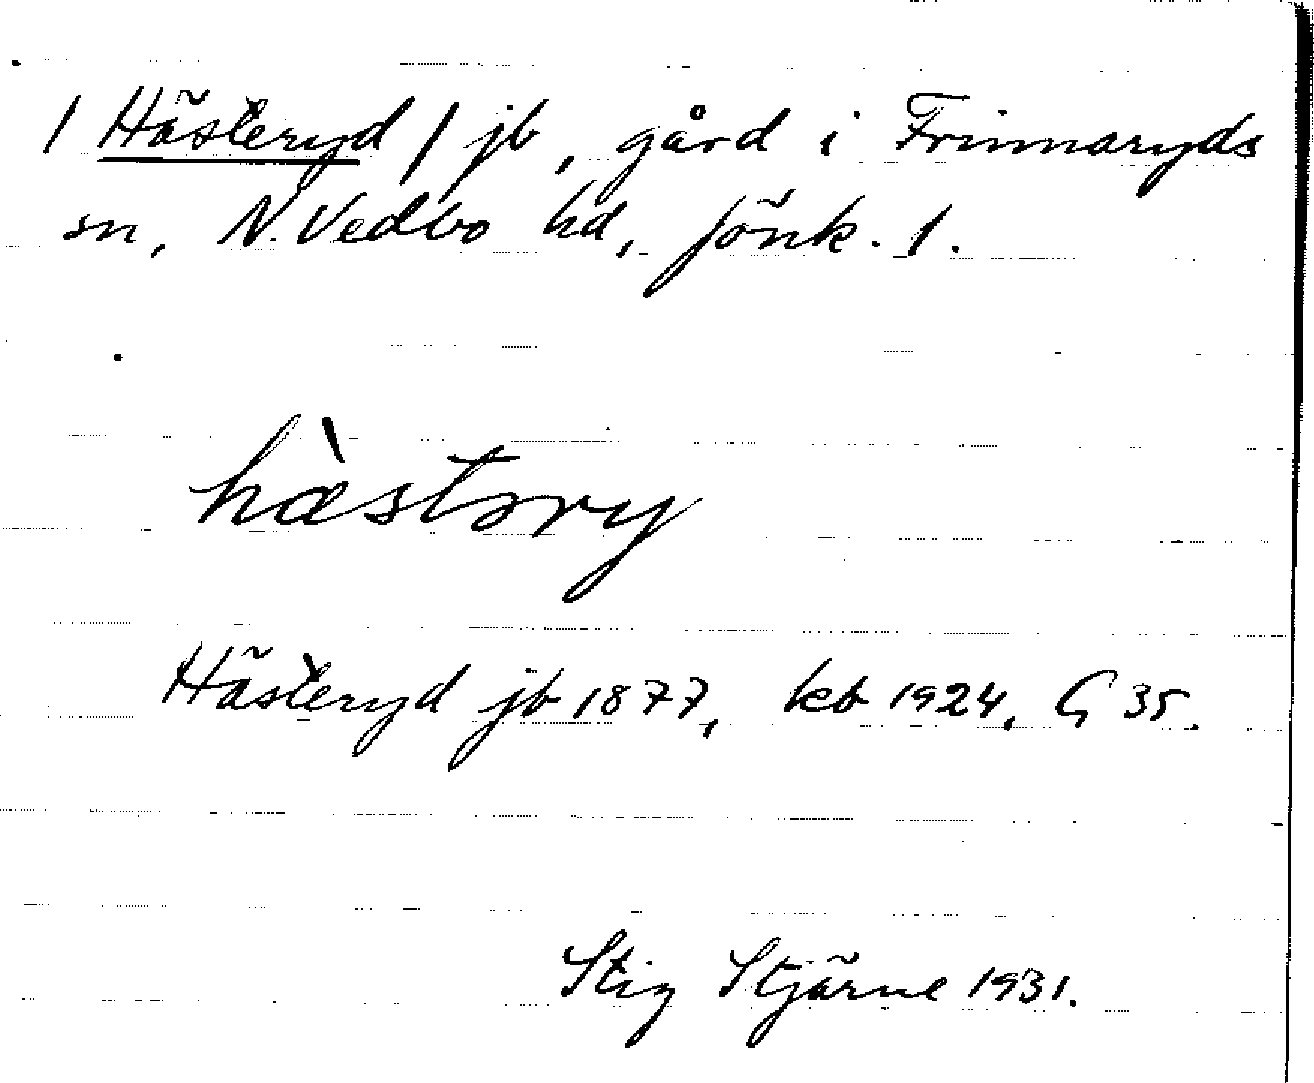 / Hästeryd / jb, gård i Frinnaryds
sn, N. Vedbo hd, Jönk. l.
hæ̀stəry
Hästeryd jb 1877, kb 1924, G 35.
Stig Stjärne 1931.